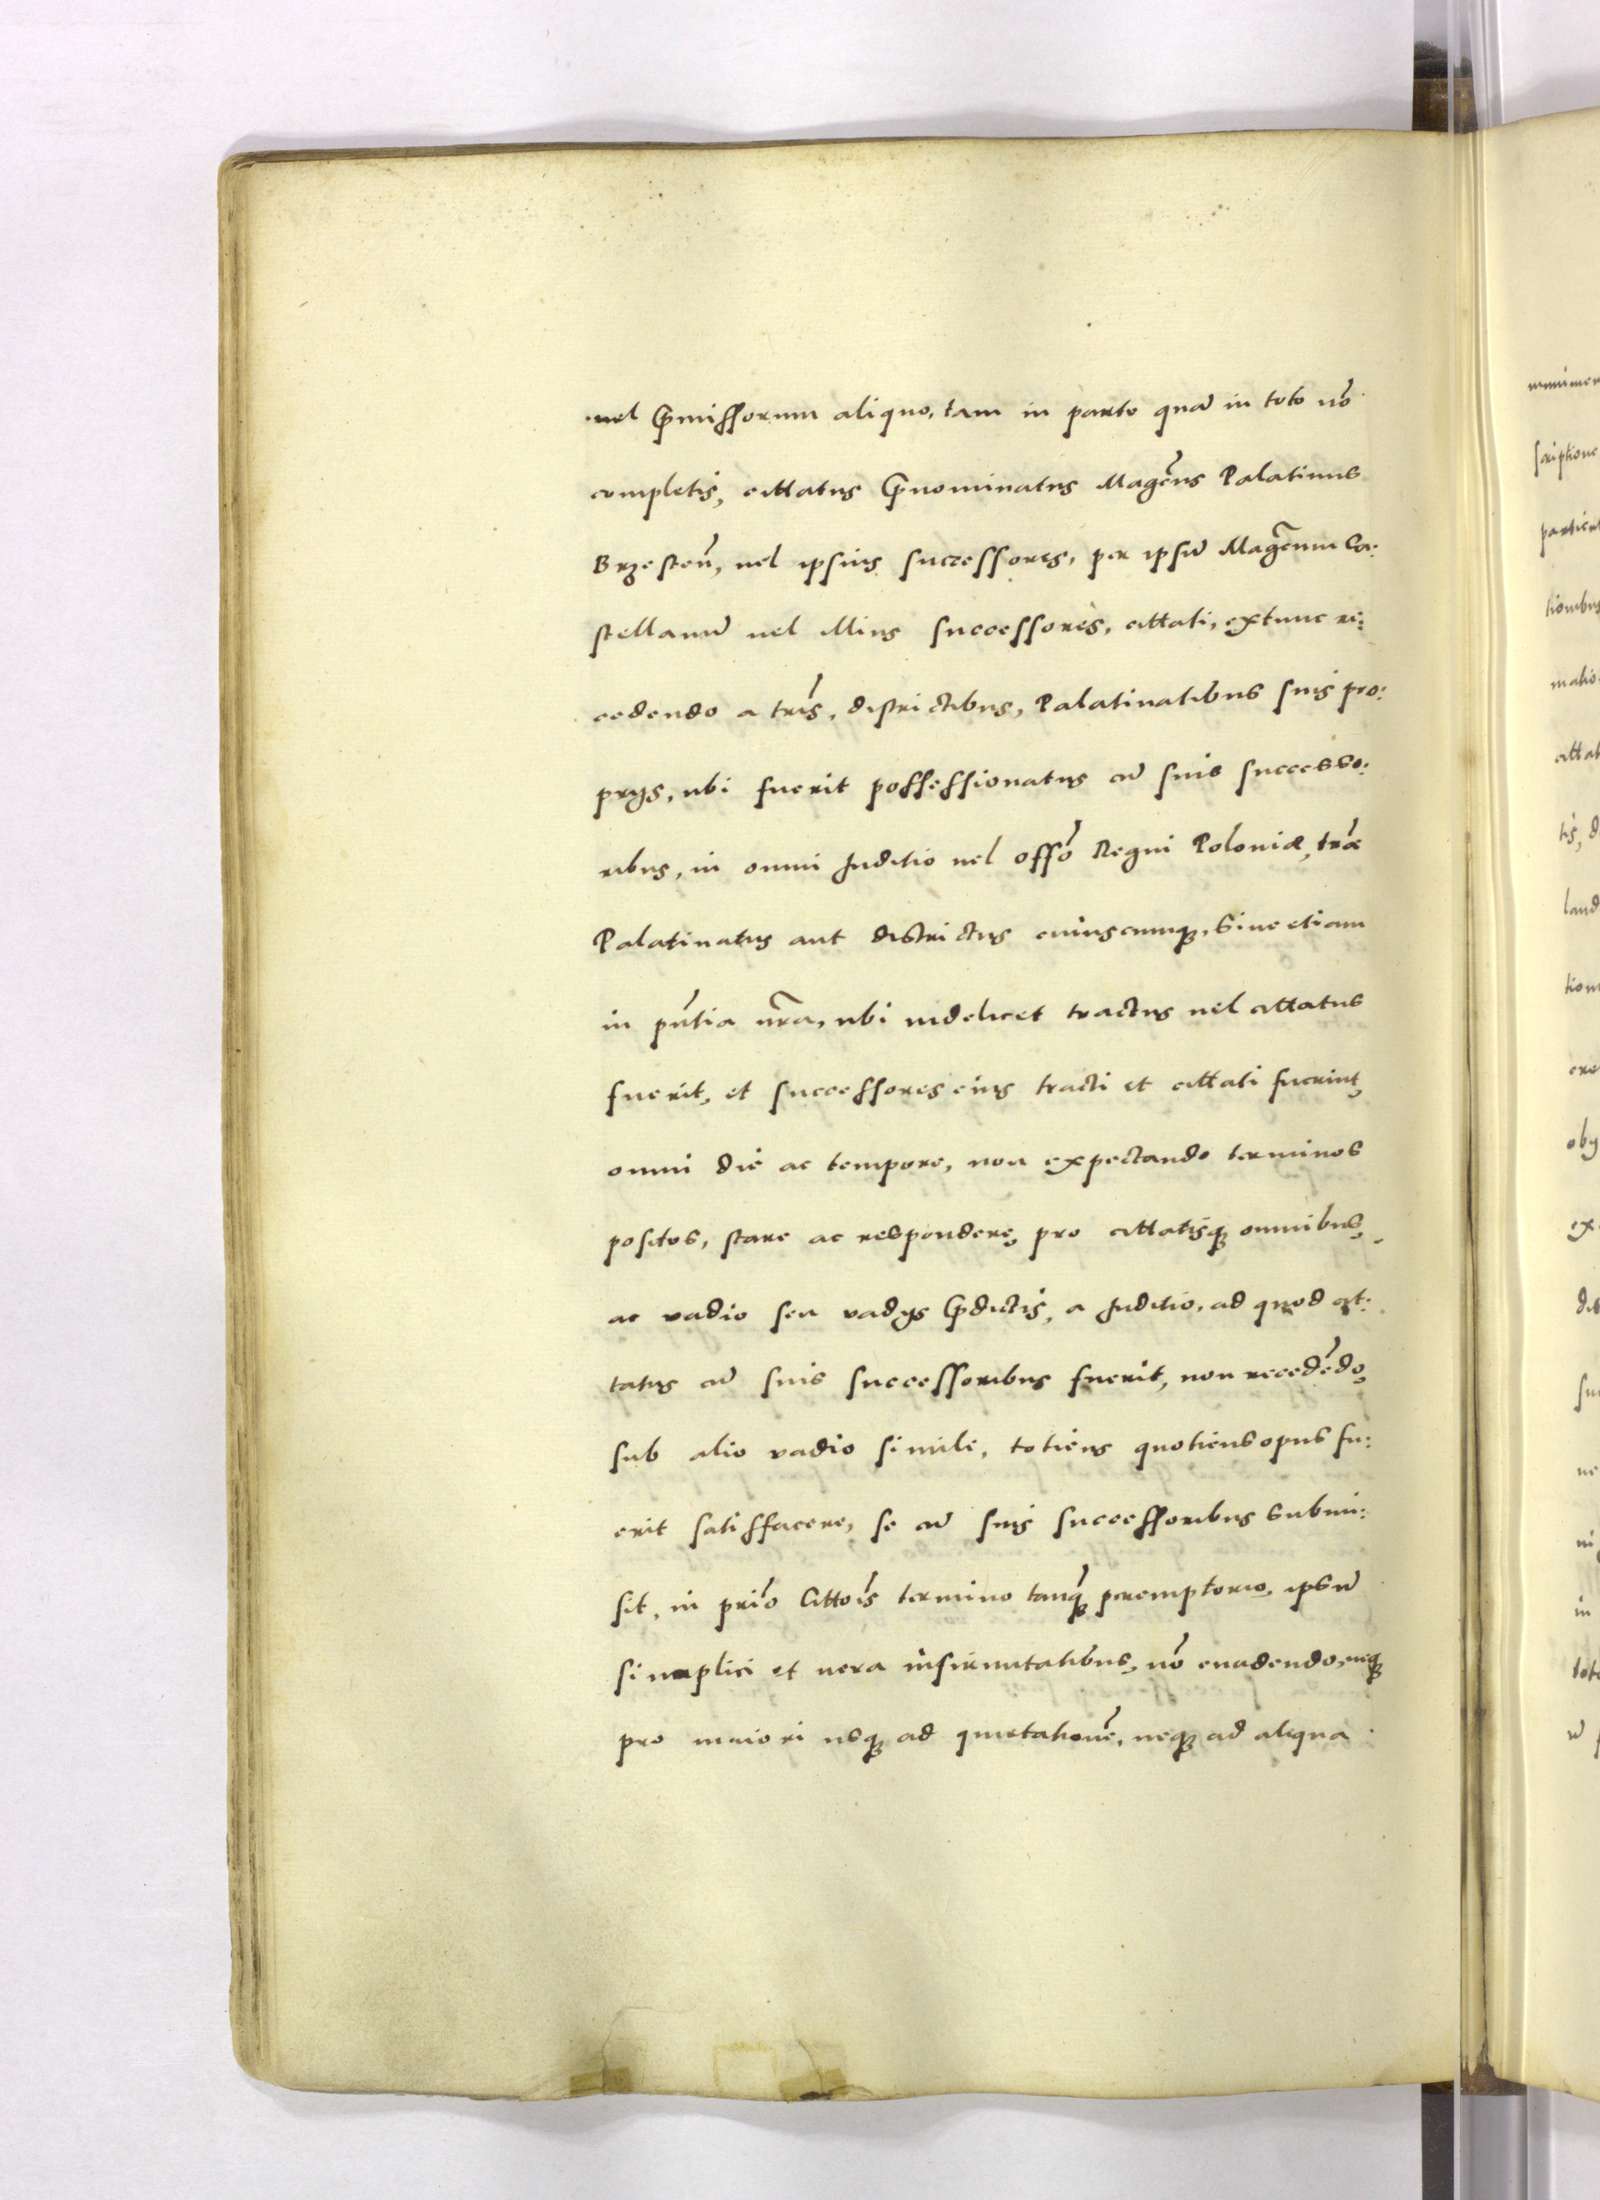 uel Pmissorum aliquo, tam in parte quã in toto nõ
completis, cittatus Pnominatus Magcus Palatinus
Brzesten̄, uel ipsius successores, per ipsũ Magcum Ca:
stellanũ uel illius successores, cittati, extunc re:
cedendo a tris, districtibus, Palatinatibus suis pro:
prys, ubi fuerit possessionatus cũ suis successo:
ribus, in omni Juditio uel offo Regni Poloniæ, træ
Palatinatus aut districtus cuiuscumq, Siue etiam
in pntia nra, ubi uidelicet tractus uel cittatus
fuerit, et successores eius tracti et cittati fuerint,
omni die ac tempore, non expectando terminos
positos, stare ac respondere, pro cittatisq omnibus,
ac vadio seu vadys Pdictis, a Juditio, ad quod cit:
tatus cũ suis successoribus fuerit, non recedẽdo,
sub alio vadio simili, totiens quotiens opus fu:
erit satisfacere, se cũ suis successoribus submi:
sit, in prio Cittois termino tanq peremptorio, ipsũ
simplici et uera infirmitatibus, nõ euadendo, neq
pro maiori usq ad quietationẽ, neq ad aliqua
munimen
scriptione
particu
tionibus
matio
cittat
tis, d
laud
tion
ere
oby
ex
dis
su
ne
ni
in
toto